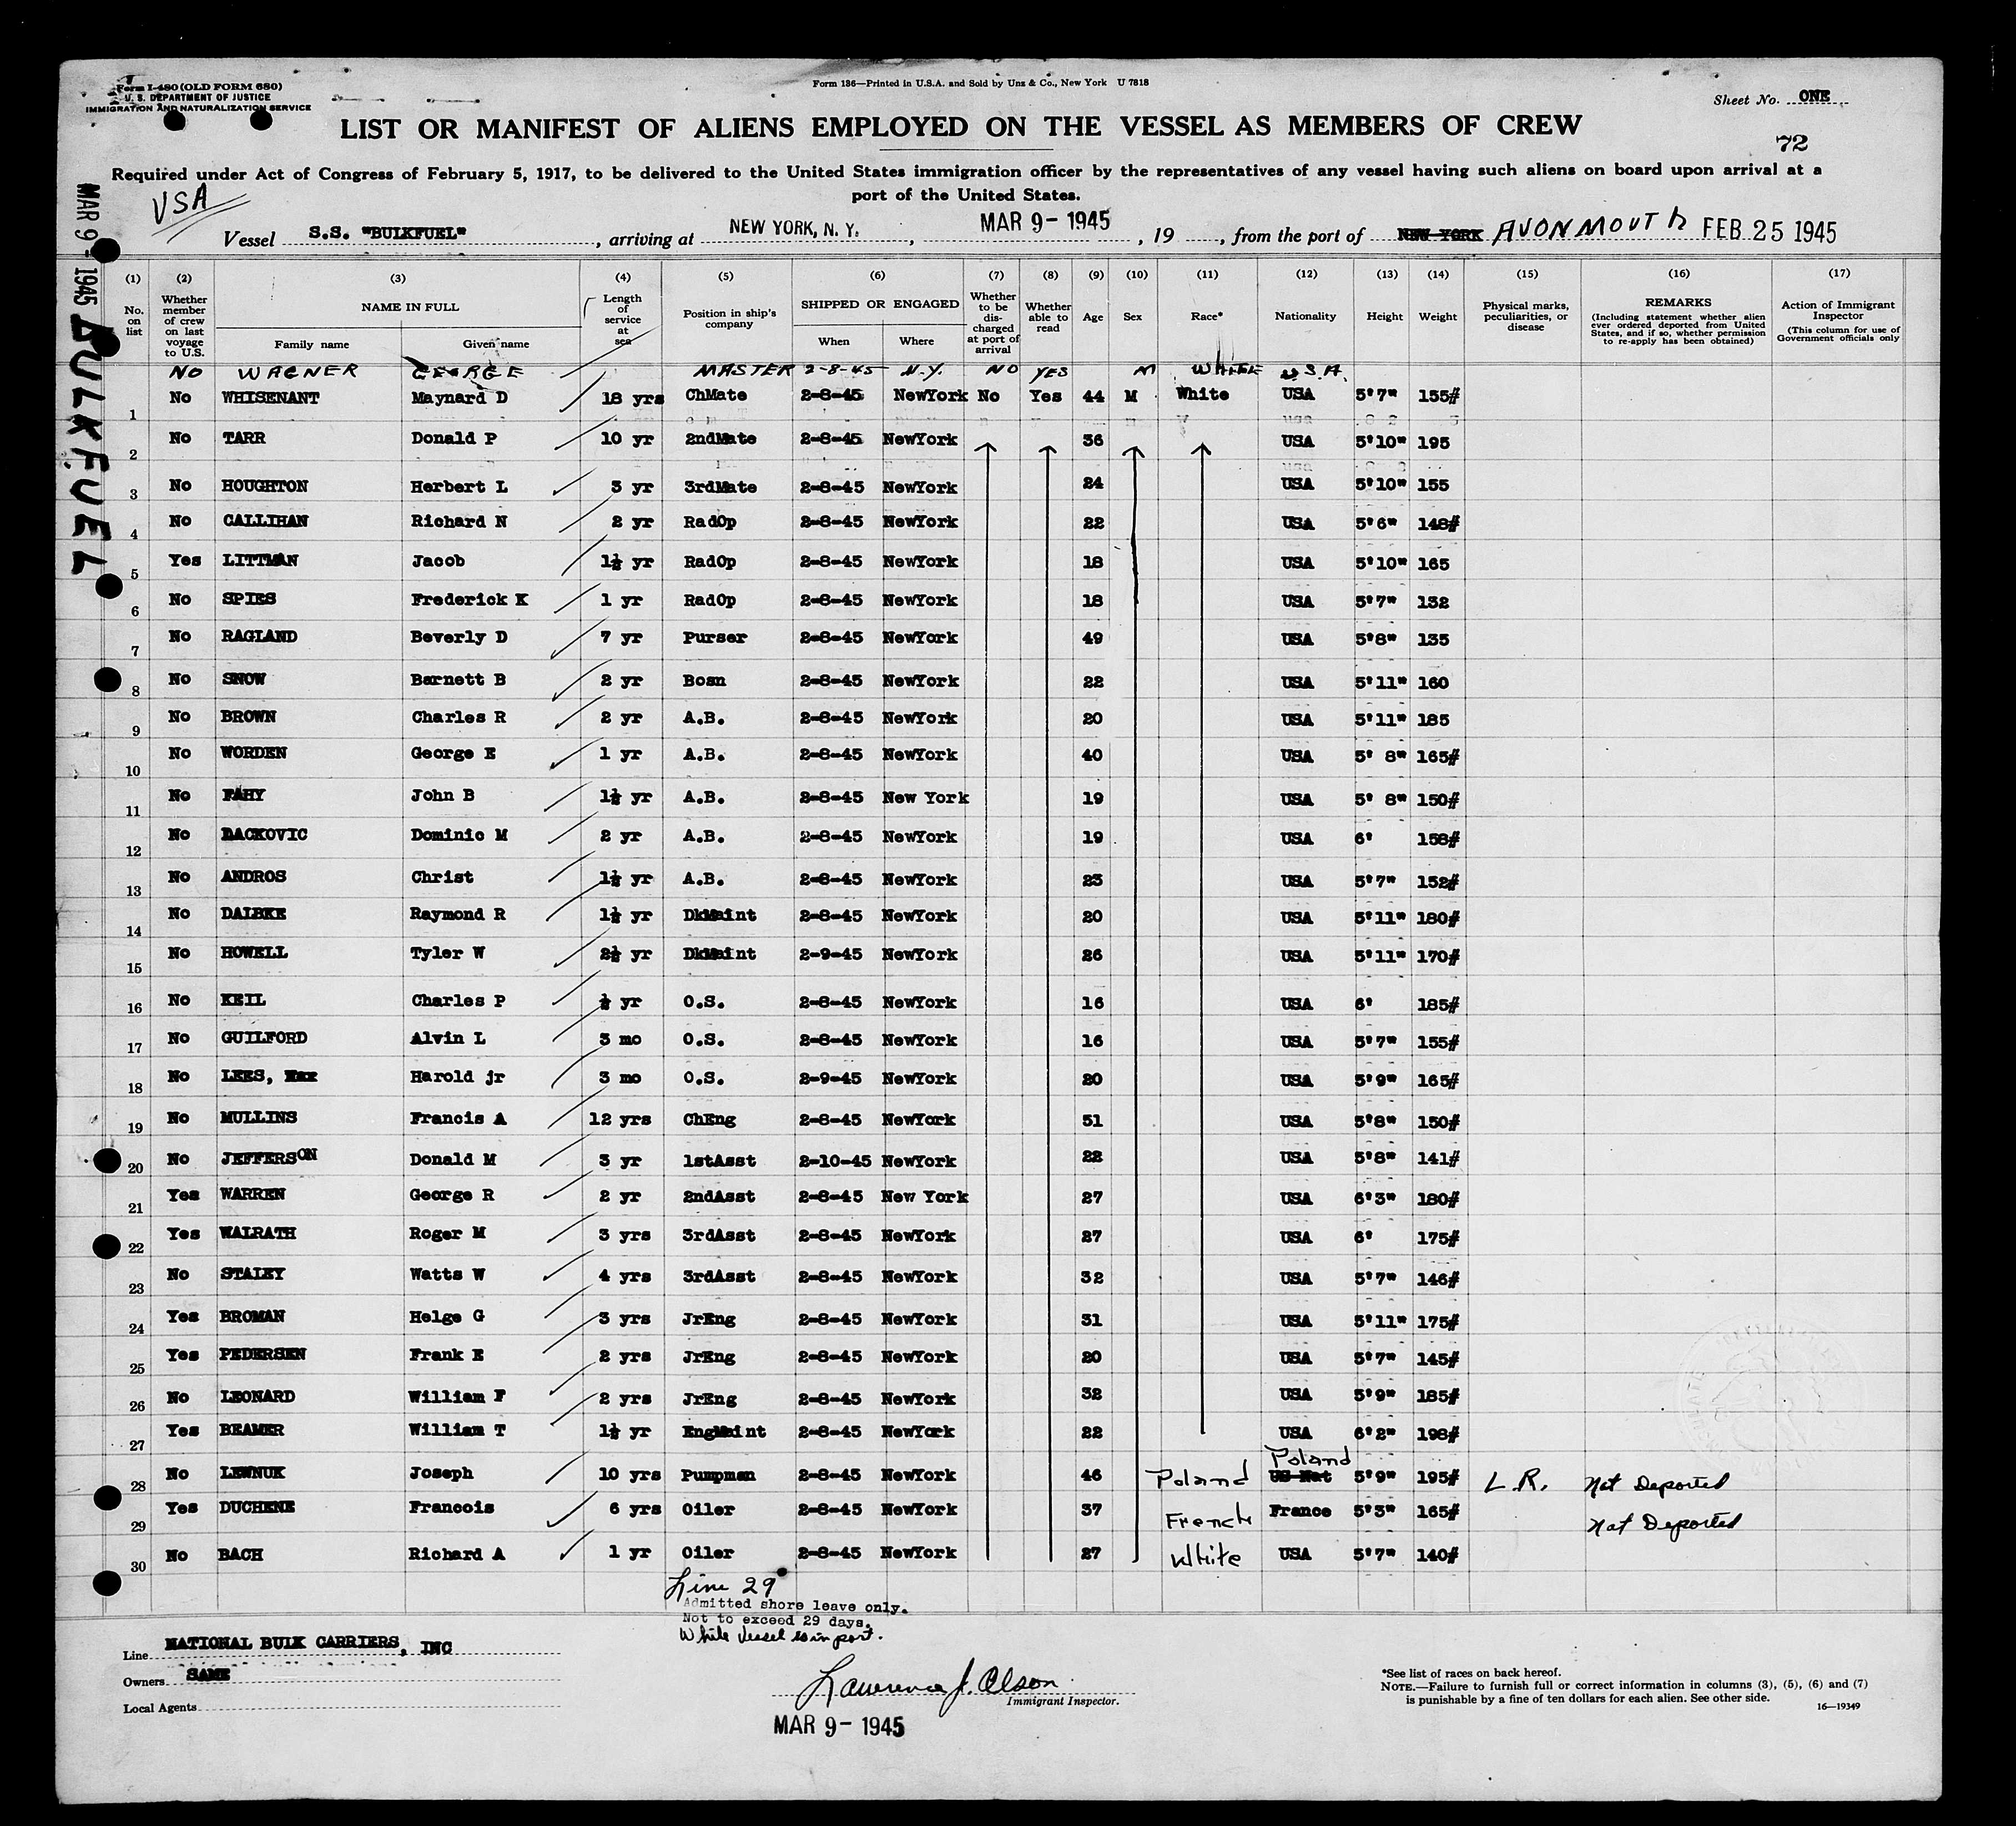 Form I-480 (OLD FORM 680)
U. S. DEPARTMENT OF JUSTICE
IMMIGRATION AND NATURALIZATION SERVICE
Form 136—Printed in U.S.A. and Sold by Unz & Co., New York U 7818
Sheet No. ONE
LIST OR MANIFEST OF ALIENS EMPLOYED ON THE VESSEL AS MEMBERS OF CREW
72
Required under Act of Congress of February 5, 1917, to be delivered to the United States immigration officer by the representatives of any vessel having such aliens on board upon arrival at a
port of the United States.
USA
Vessel S.S. "BULKFUEL", arriving at NEW YORK, N. Y., MAR 9-1945, 19, from the port of NEW YORK AVONMOUTH FEB 25 1945
MAR 9-1945 BULKFUEL
(1) (2) (3) (4) (5) (6) (7) (8) (9) (10) (11) (12) (13) (14) (15) (16) (17)
No. on list
Whether member of crew on last voyage to U.S.
NAME IN FULL
Family name
Given name
Length of service at sea
Position in ship's company
SHIPPED OR ENGAGED
When
Where
Whether to be discharged at port of arrival
Whether able to read
Age
Sex
Race*
Nationality
Height
Weight
Physical marks, peculiarities, or disease
REMARKS
(Including statement whether alien ever ordered deported from United States, and if so, whether permission to re-apply has been obtained)
Action of Immigrant Inspector
(This column for use of Government officials only)
NO WAGNER GEORGE MASTER 2-8-45 N.Y. NO YES M WHITE U.S.A.
1 No WHISENANT Maynard D 18 yrs ChMate 2-8-45 NewYork No Yes 44 M White USA 5'7" 155#
2 No TARR Donald P 10 yr 2ndMate 2-8-45 NewYork 36 USA 5'10" 195
3 No HOUGHTON Herbert L 3 yr 3rdMate 2-8-45 NewYork 24 USA 5'10" 155
4 No CALLIHAN Richard N 2 yr RadOp 2-8-45 NewYork 22 USA 5'6" 148#
5 Yes LITTMAN Jacob 1½ yr RadOp 2-8-45 NewYork 18 USA 5'10" 165
6 No SPIES Frederick K 1 yr RadOp 2-8-45 NewYork 18 USA 5'7" 132
7 No RAGLAND Beverly D 7 yr Purser 2-8-45 NewYork 49 USA 5'8" 135
8 No SNOW Barnett B 2 yr Bosn 2-8-45 NewYork 22 USA 5'11" 160
9 No BROWN Charles R 2 yr A.B. 2-8-45 NewYork 20 USA 5'11" 185
10 No WORDEN George E 1 yr A.B. 2-8-45 NewYork 40 USA 5' 8" 165#
11 No FAHY John B 1½ yr A.B. 2-8-45 New York 19 USA 5' 8" 150#
12 No DACKOVIC Dominic M 2 yr A.B. 2-8-45 NewYork 19 USA 6' 158#
13 No ANDROS Christ 1½ yr A.B. 2-8-45 NewYork 23 USA 5'7" 152#
14 No DALBKE Raymond R 1½ yr DkMaint 2-8-45 NewYork 20 USA 5'11" 180#
15 No HOWELL Tyler W 2½ yr DkMaint 2-9-45 NewYork 26 USA 5'11" 170#
16 No KEIL Charles P ½ yr O.S. 2-8-45 NewYork 16 USA 6' 185#
17 No GUILFORD Alvin L 3 mo O.S. 2-8-45 NewYork 16 USA 5'7" 155#
18 No LEES, Harold jr 3 mo O.S. 2-9-45 NewYork 20 USA 5'9" 165#
19 No MULLINS Francis A 12 yrs ChEng 2-8-45 NewYork 51 USA 5'8" 150#
20 No JEFFERSON Donald M 3 yr 1stAsst 2-10-45 NewYork 22 USA 5'8" 141#
21 Yes WARREN George R 2 yr 2ndAsst 2-8-45 New York 27 USA 6'3" 180#
22 Yes WALRATH Roger M 3 yrs 3rdAsst 2-8-45 NewYork 27 USA 6' 175#
23 No STALEY Watts W 4 yrs 3rdAsst 2-8-45 NewYork 32 USA 5'7" 146#
24 Yes BROMAN Helge G 3 yrs JrEng 2-8-45 NewYork 31 USA 5'11" 175#
25 Yes PEDERSEN Frank E 2 yrs JrEng 2-8-45 NewYork 20 USA 5'7" 145#
26 No LEONARD William F 2 yrs JrEng 2-8-45 NewYork 32 USA 5'9" 185#
27 Yes BEAMER William T 1½ yr EngMaint 2-8-45 NewYork 22 USA 6'2" 198#
28 No LEWNUK Joseph 10 yrs Pumpman 2-8-45 NewYork 46 Poland US Nat Poland 5'9" 195# L.R. Not Deported
29 Yes DUCHENE Francois 6 yrs Oiler 2-8-45 NewYork 37 French France 5'3" 165# Not Deported
30 No BACH Richard A 1 yr Oiler 2-8-45 NewYork 27 White USA 5'7" 140#
Line 29
Admitted shore leave only.
Not to exceed 29 days.
While vessel is in port.
Line NATIONAL BULK CARRIERS, INC
Owners SAME
Local Agents
Lawrence J. Olson
Immigrant Inspector.
MAR 9-1945
*See list of races on back hereof.
NOTE.—Failure to furnish full or correct information in columns (3), (5), (6) and (7)
is punishable by a fine of ten dollars for each alien. See other side.
16—19349